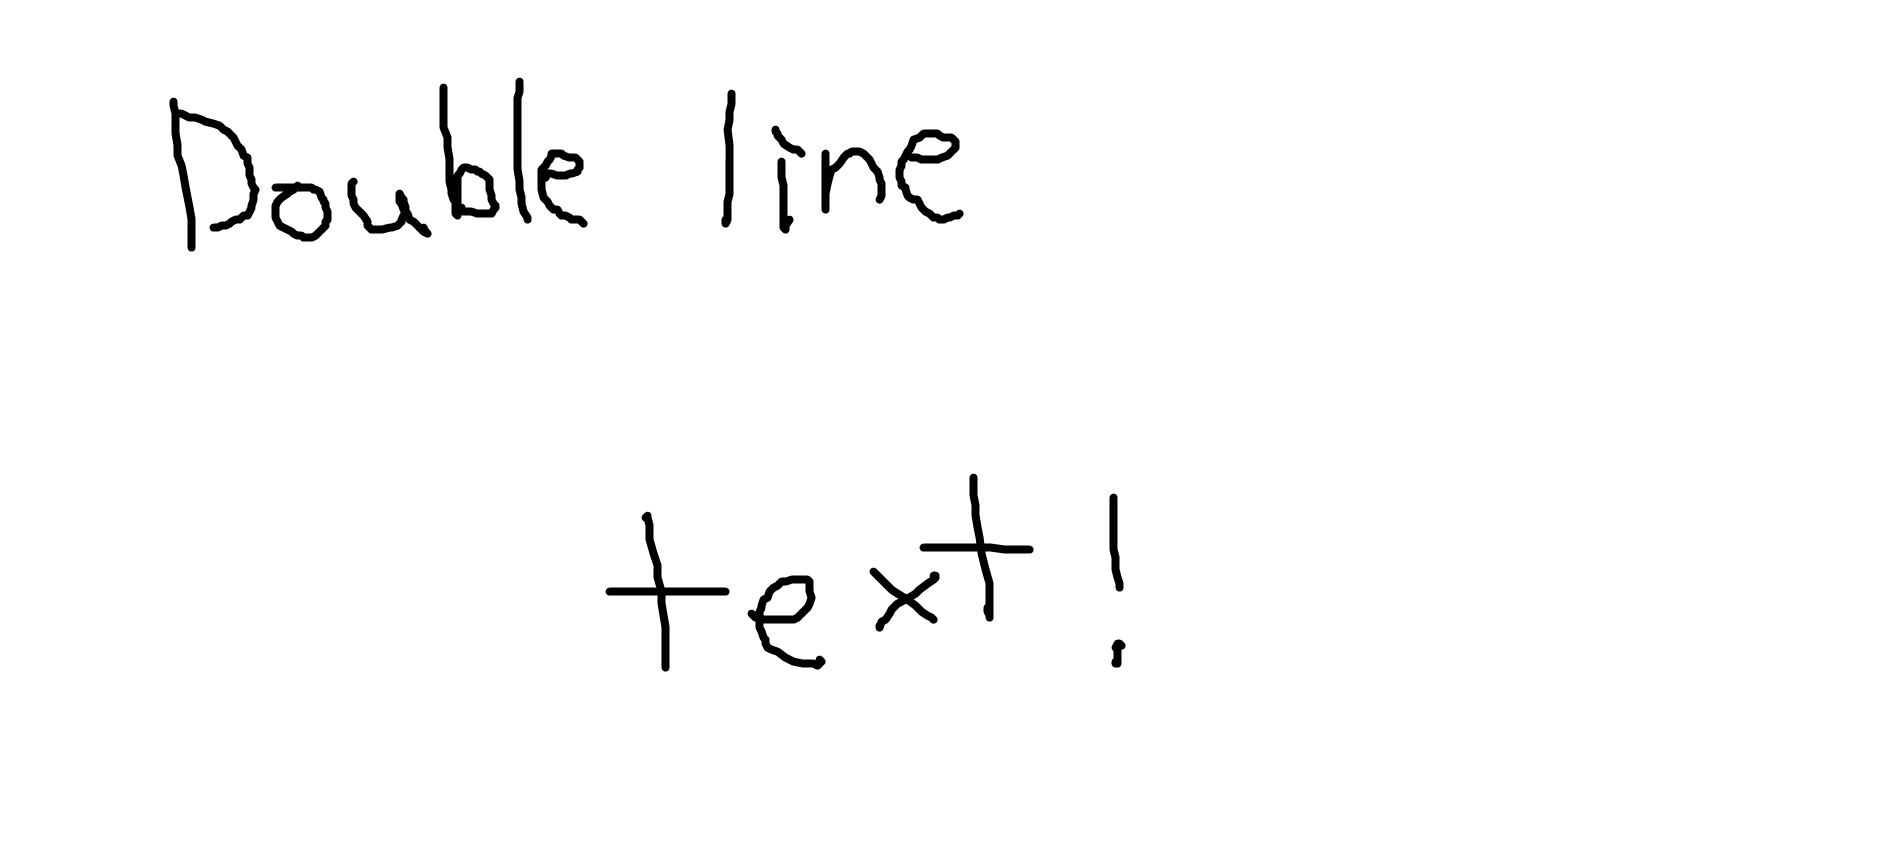 Double line
text!